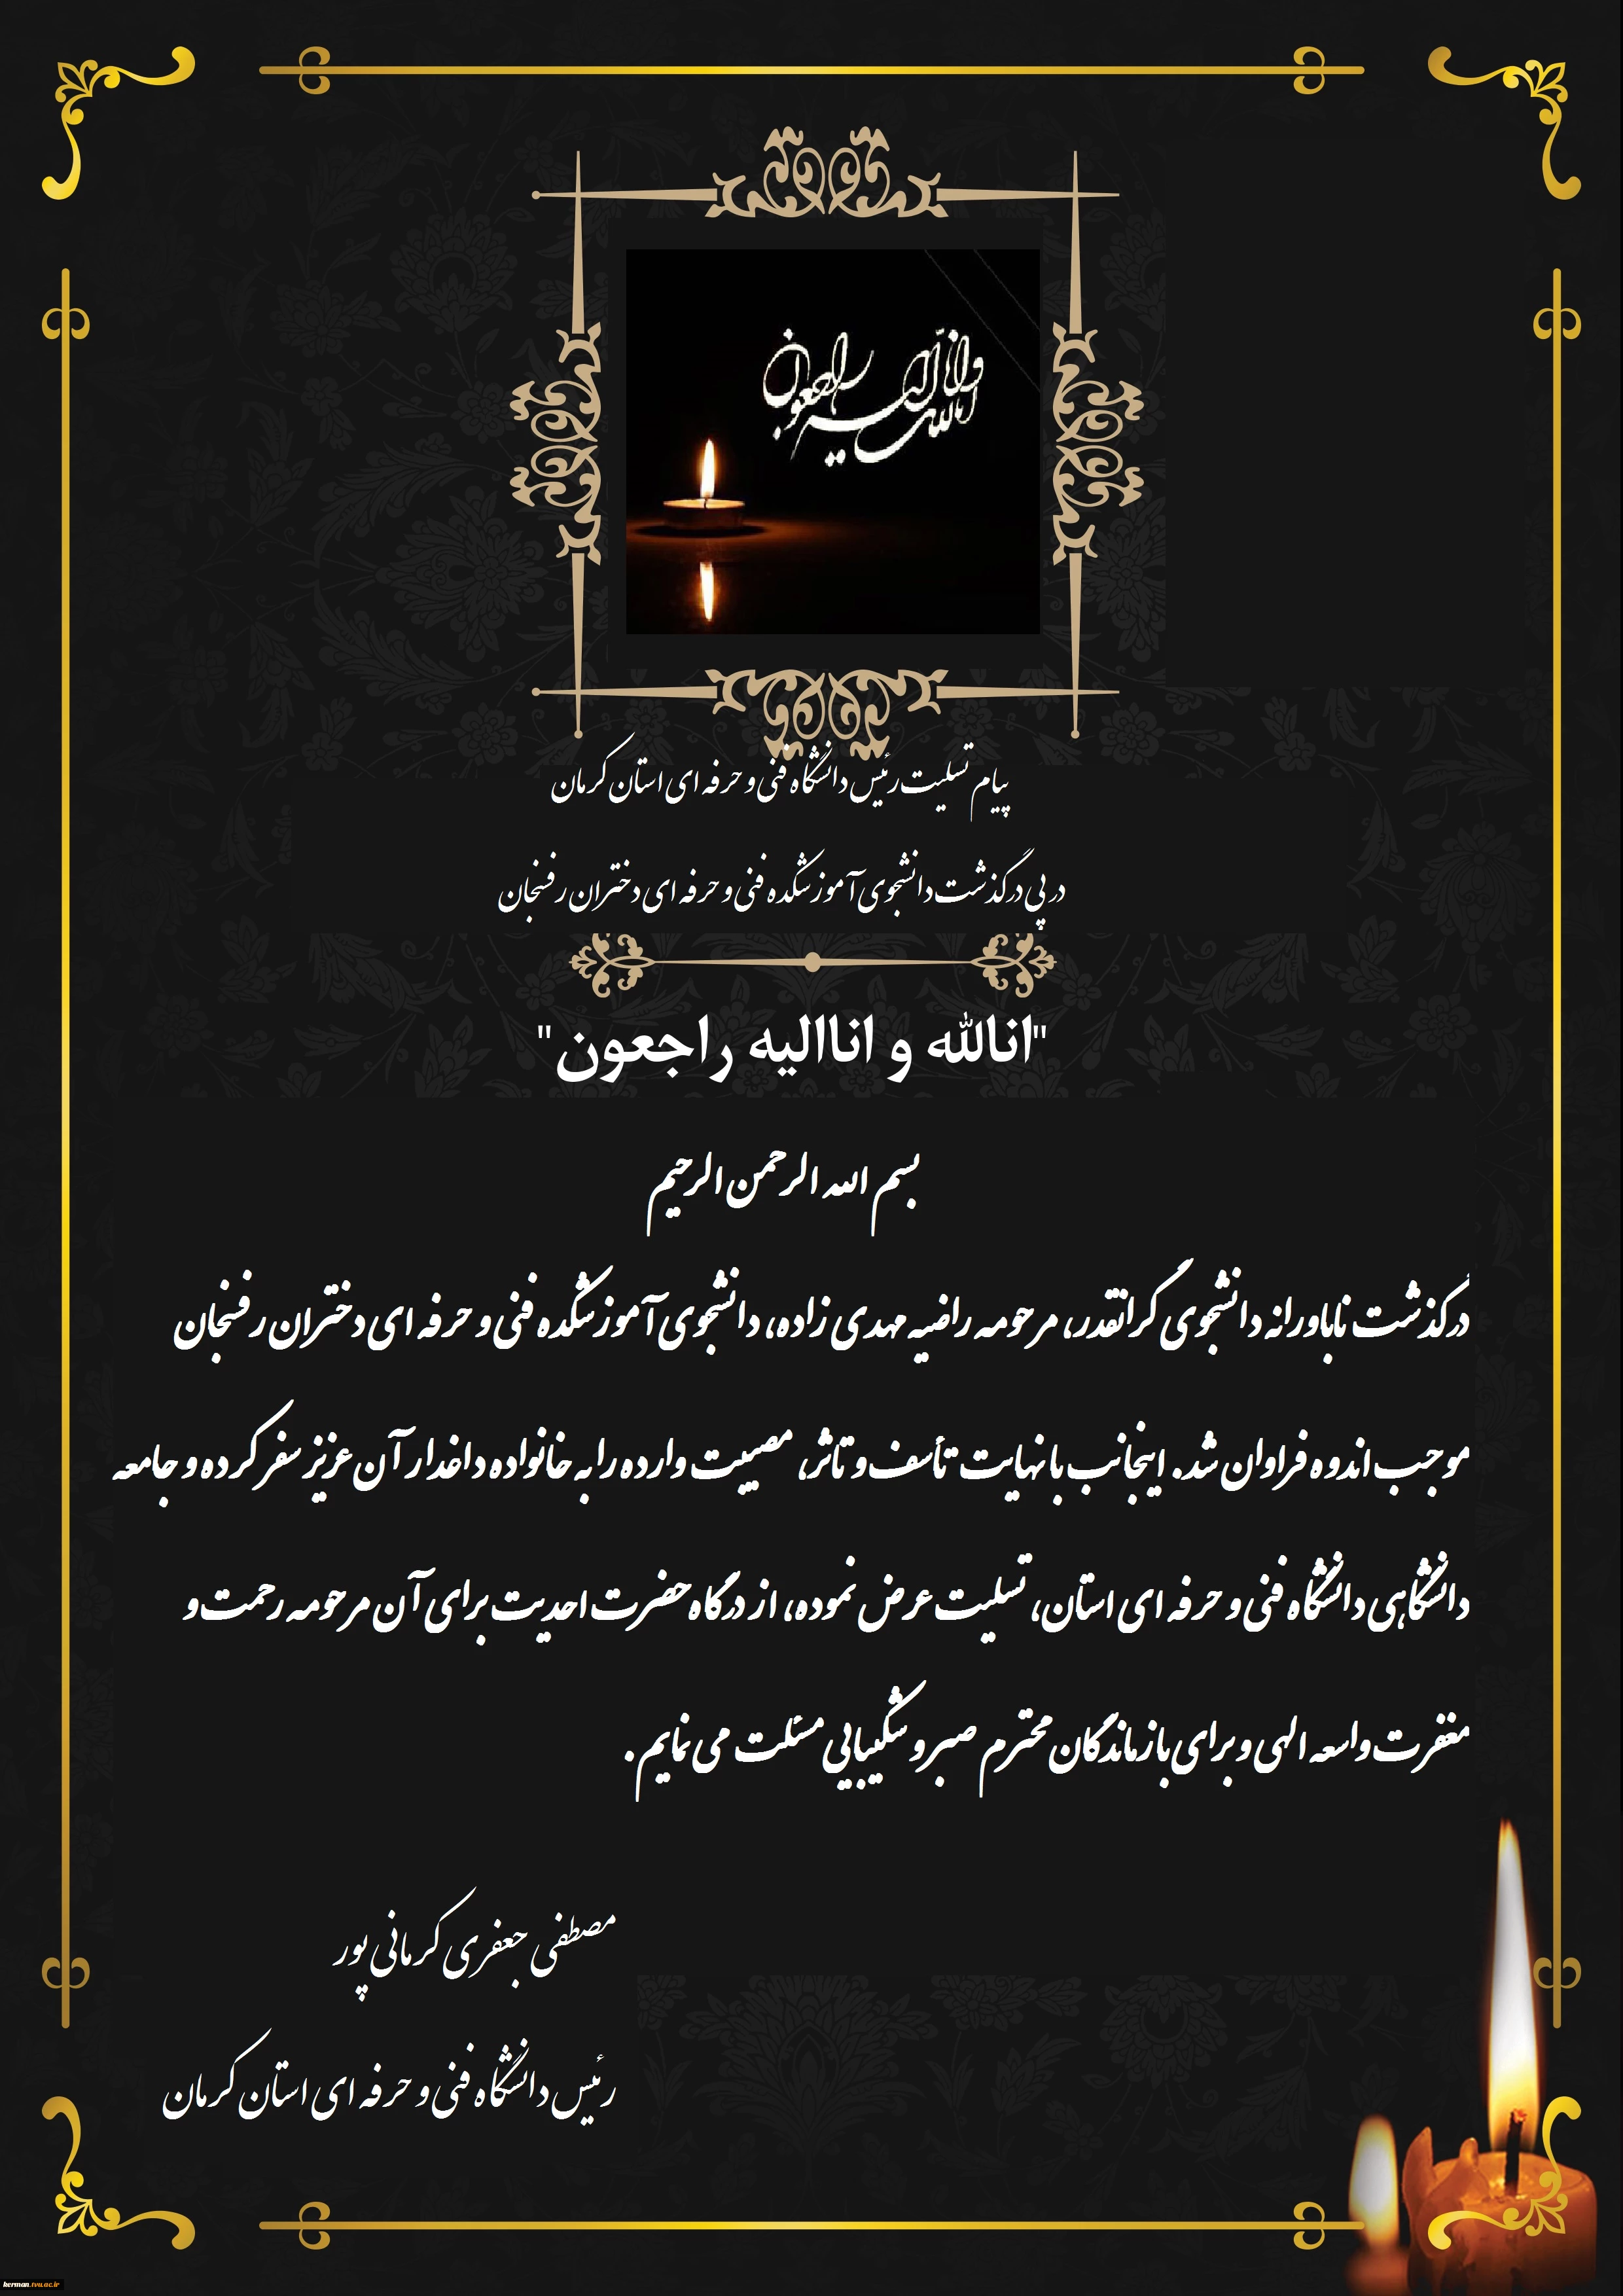 انا لله و انا الیه راجعون
پیام تسلیت رئیس دانشگاه فنی و حرفه ای استان کرمان
در پی درگذشت دانشجوی آموزشکده فنی و حرفه ای دختران رفسنجان
"اناللّه و اناالیه راجعون"
بسم الله الرحمن الرحیم
درگذشت ناباورانه دانشجوی گرانقدر، مرحومه راضیه مهدی زاده، دانشجوی آموزشکده فنی و حرفه ای دختران رفسنجان
موجب اندوه فراوان شد. اینجانب با نهایت تأسف و تاثر، مصیبت وارده را به خانواده داغدار آن عزیز سفر کرده و جامعه
دانشگاهی دانشگاه فنی و حرفه ای استان، تسلیت عرض نموده، از درگاه حضرت احدیت برای آن مرحومه رحمت و
مغفرت واسعه الهی و برای بازماندگان محترم صبر و شکیبایی مسئلت می نمایم.
مصطفی جعفری کرمانی پور
رئیس دانشگاه فنی و حرفه ای استان کرمان
kerman.tvu.ac.ir